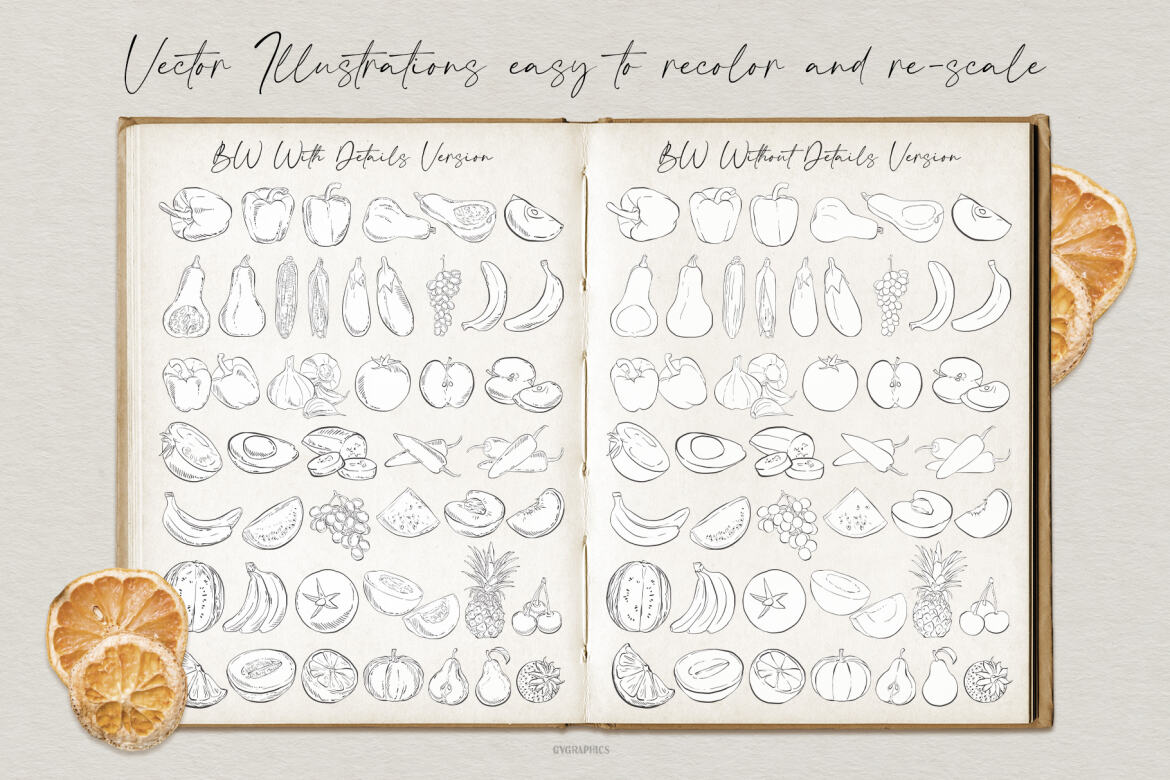 Vector Illustrations easy to recolor and re-scale
BW With Details Version
BW Without Details Version
GYGRAPHICS